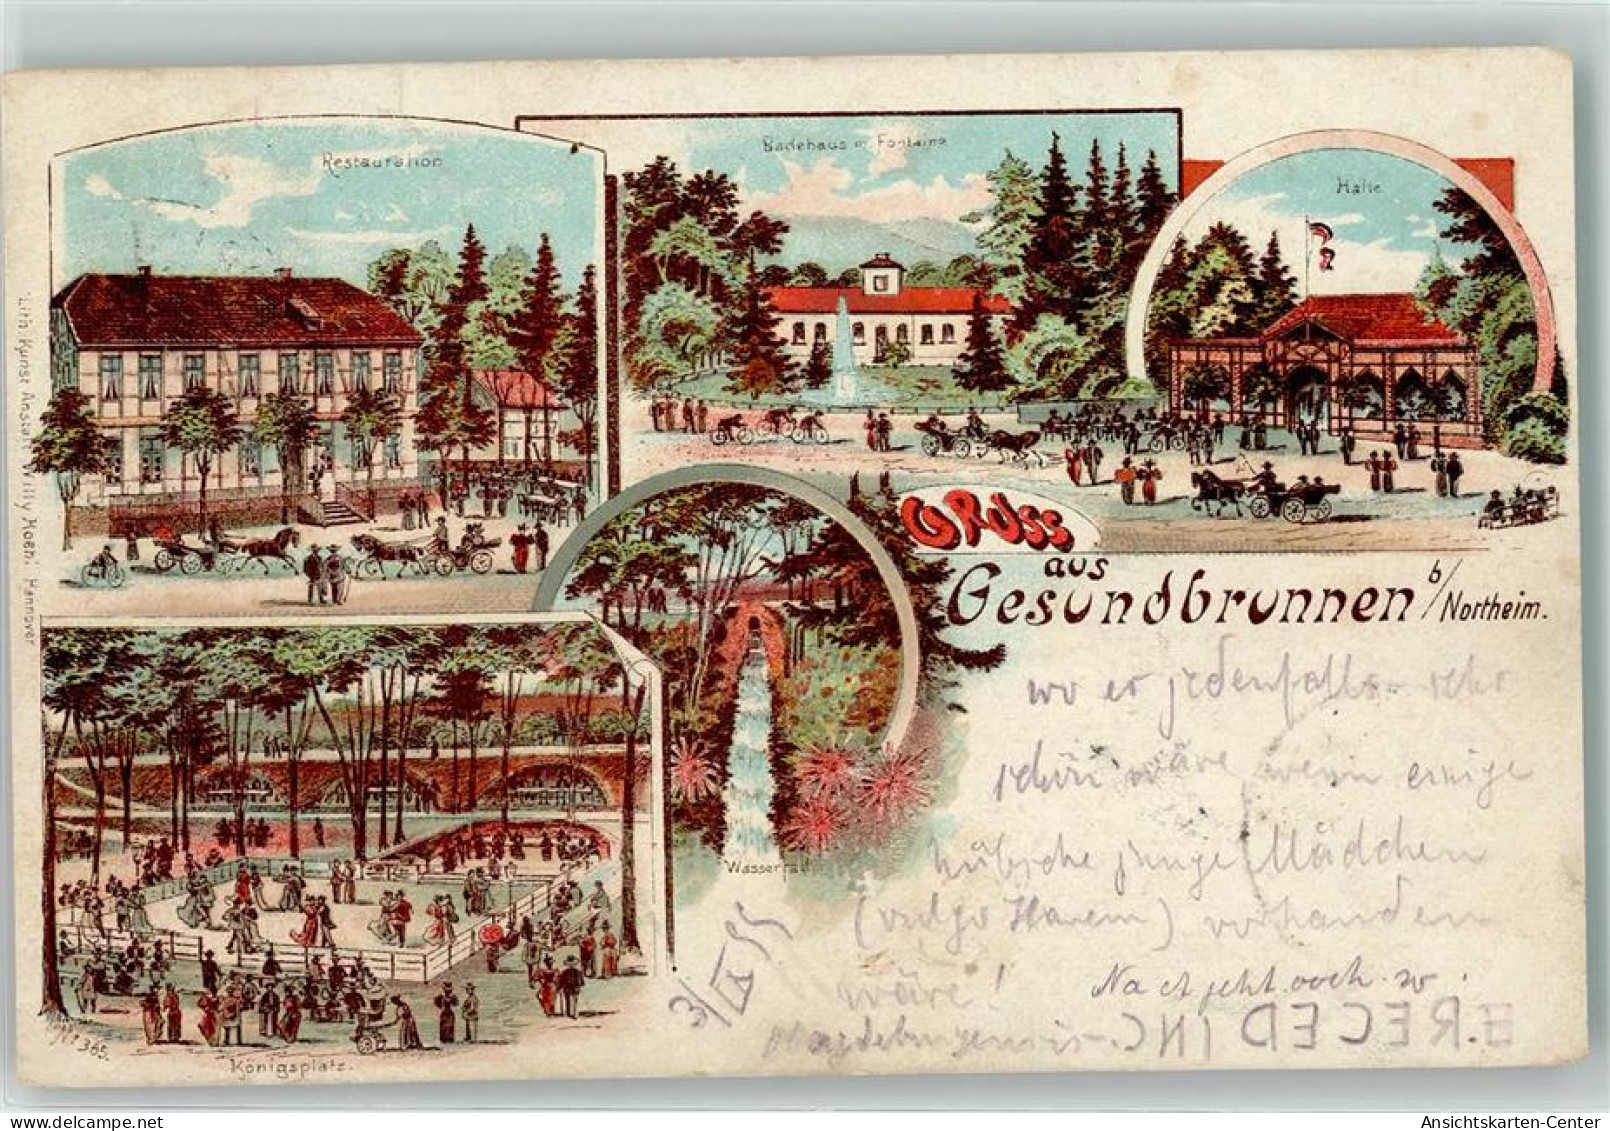 Restauration
Badehaus m Fontaine
Halle
Lith. Kunst Anstalt Willy Moehl. Hannover
GRUSS
aus
Gesundbrunnen b/Northeim.
wo es jedenfalls sehr
schön wäre wenn einige
hübsche junge Mädchen
(vulgo Harem) vorhanden
wäre!
Na et jeht ooch
3/IX 95
Wasserfall
365.
Königsplatz.
Ansichtskarten-Center